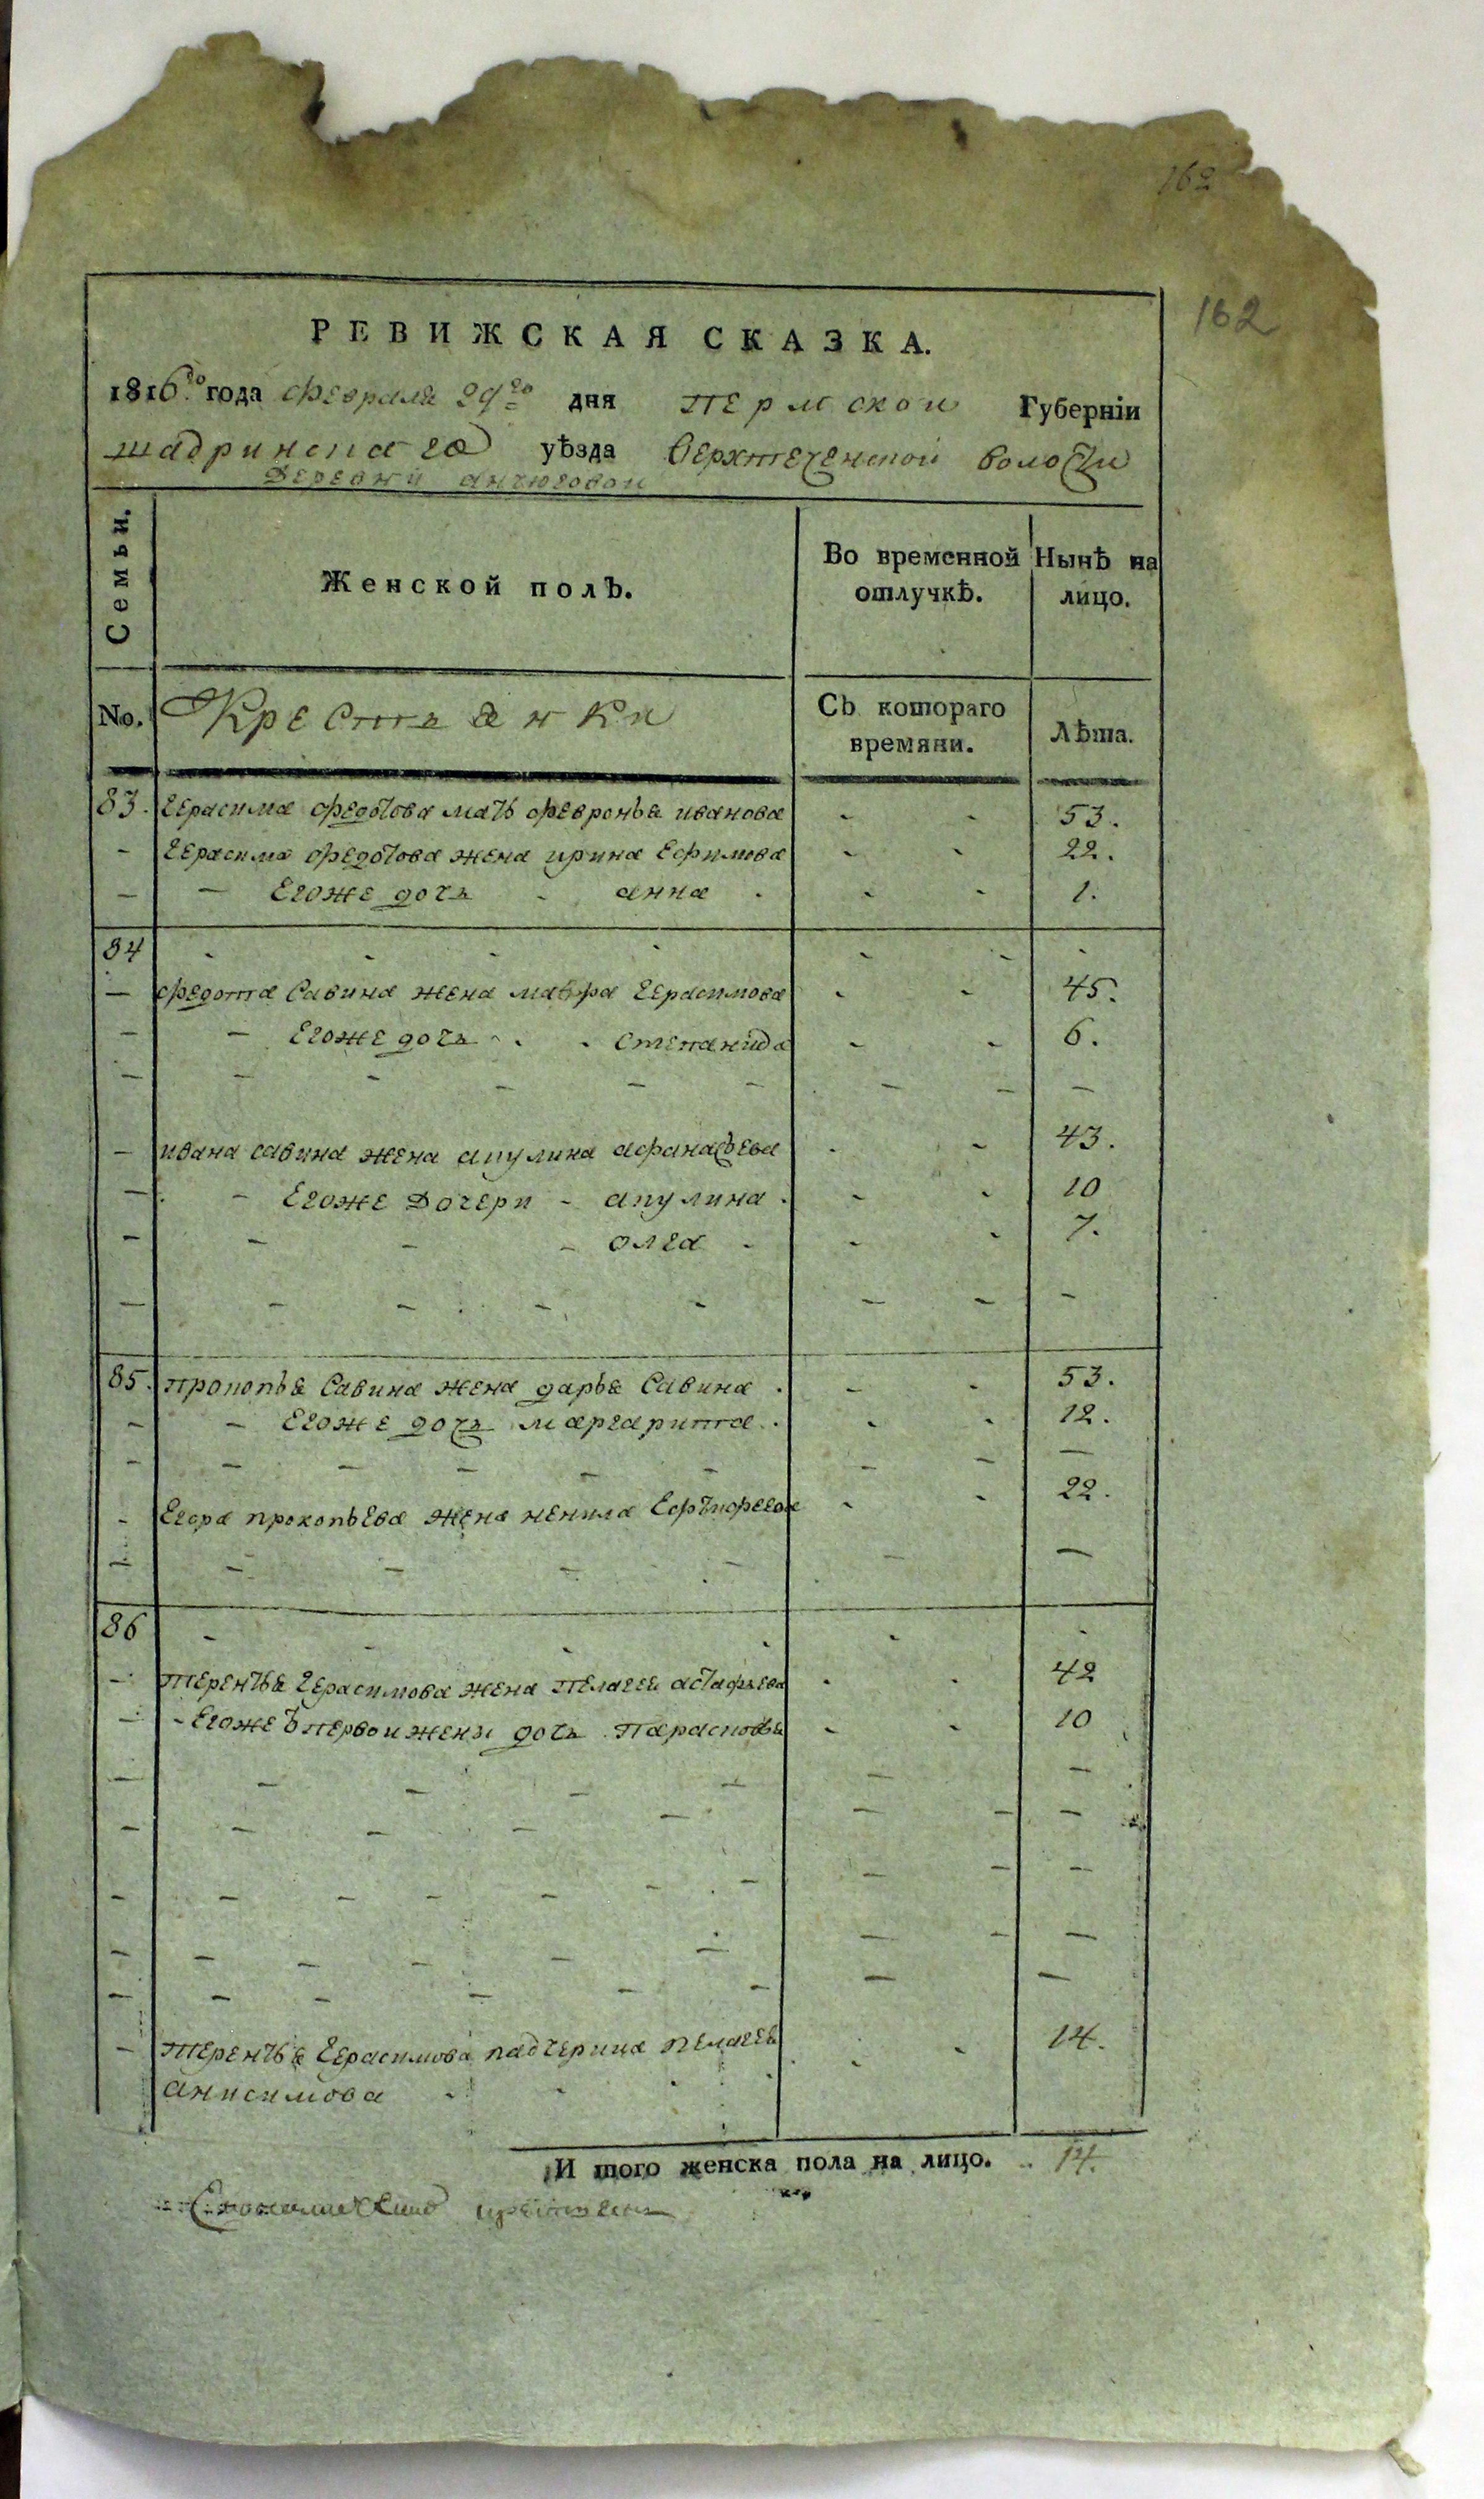 162
162
РЕВИЖСКАЯ СКАЗКА.
1816го года февраля 29го дня пермской Губернїи
шадринскаго уѣзда верхтеченской волости
деревни анчюговой
Семьи. Женской полъ. Во временной Нынѣ на
отлучкѣ. лицо.
No. Крестьянки Съ котораго Лѣта.
времяни.
83. Герасима федотова мать февронья иванова - - 53.
- Герасима федотова жена ирина Ефимова - - 22.
- - Егоже дочь - анна - - 1.
84 - - - - - - -
- федота Савина жена мавра Герасимова - - 45.
- - Егоже дочь - - степанида - - 6.
- - - - - - - - -
- ивана савина жена акулина афанасьева - - 43.
- - Егоже дочери - акулина - - 10
- - - - олга - - - 7.
- - - - - - - -
85. прокопья Савина жена дарья Савина - - 53.
- - Егоже дочь маргарита - - 12.
- - - - - - - - -
- Егора прокопьева жена ненила - - 22.
- - - - - - -
86 - - - - - -
- терентья Герасимова жена пелагея астафьева - - 42
- - Егоже первой жены дочь парасковья - - 10
- - - - - - -
- - - - - - - -
- - - - - - - - - -
- - - - - - - - -
- - - - - - - -
- терентья Герасимова падчерица пелагея - - 14.
анисимова - - - -
И того женска пола на лицо. 14.